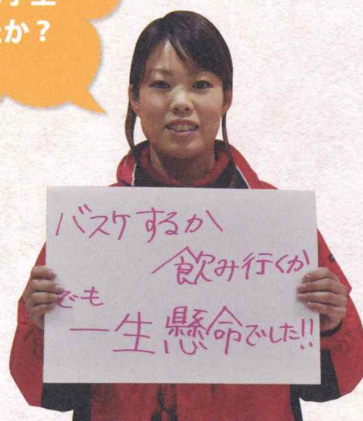 か？
バスケするか
飲み行くか
でも
一生懸命でした!!